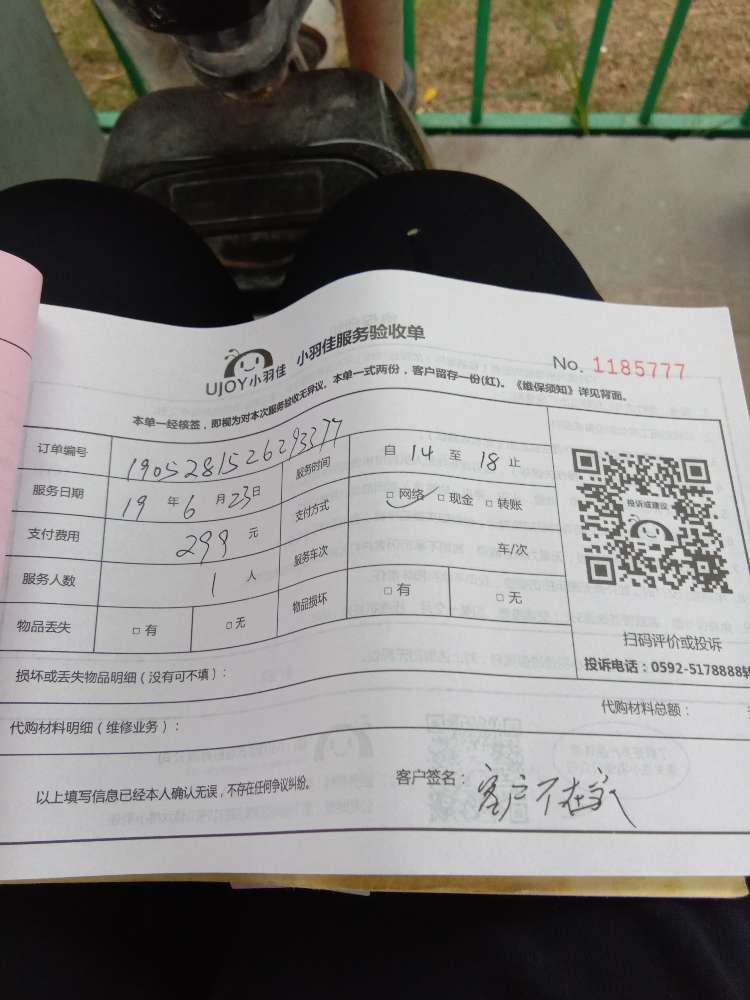 UJOY小羽佳 小羽佳服务验收单
No. 1185777
本单一经核签，即视为对本次服务验收无异议。本单一式两份，客户留存一份(红)。《维保须知》详见背面。
订单编号 1905281526293377 服务时间 自 14 至 18 止
服务日期 19 年 6 月 23 日 支付方式 □ 网络 □ 现金 □ 转账
支付费用 299 元 服务车次 车/次
服务人数 1 人 物品损坏 □ 有 □ 无
物品丢失 □ 有 □ 无
投诉或建议
扫码评价或投诉
投诉电话：0592-5178888转
损坏或丢失物品明细（没有可不填）：
代购材料明细（维修业务）： 代购材料总额：
以上填写信息已经本人确认无误，不存在任何争议纠纷。 客户签名： 客户不在家